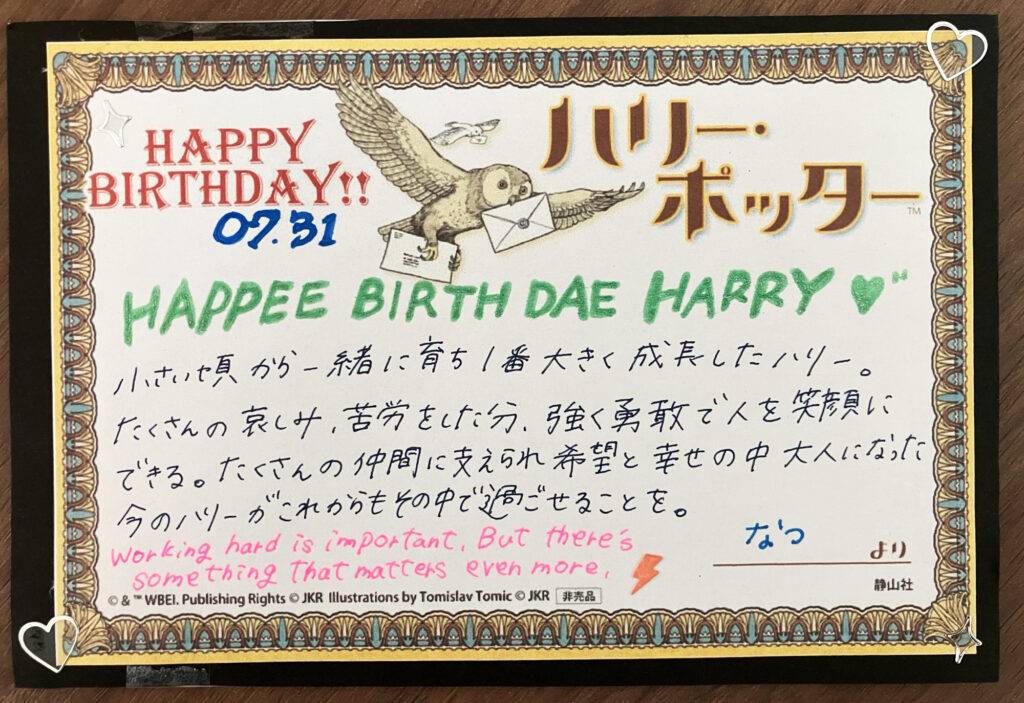 HAPPY
BIRTHDAY!!
07.31
ハリー・
ポッター™
HAPPEE BIRTH DAE HARRY ♥"
小さい頃から一緒に育ち1番大きく成長したハリー。
たくさんの哀しみ、苦労をした分、強く勇敢で人を笑顔に
できる。たくさんの仲間に支えられ希望と幸せの中大人になった
今のハリーがこれからもその中で過ごせることを。
Working hard is important. But there's
something that matters even more.
なつ
より
静山社
© & ™ WBEI. Publishing Rights © JKR Illustrations by Tomislav Tomic © JKR 非売品